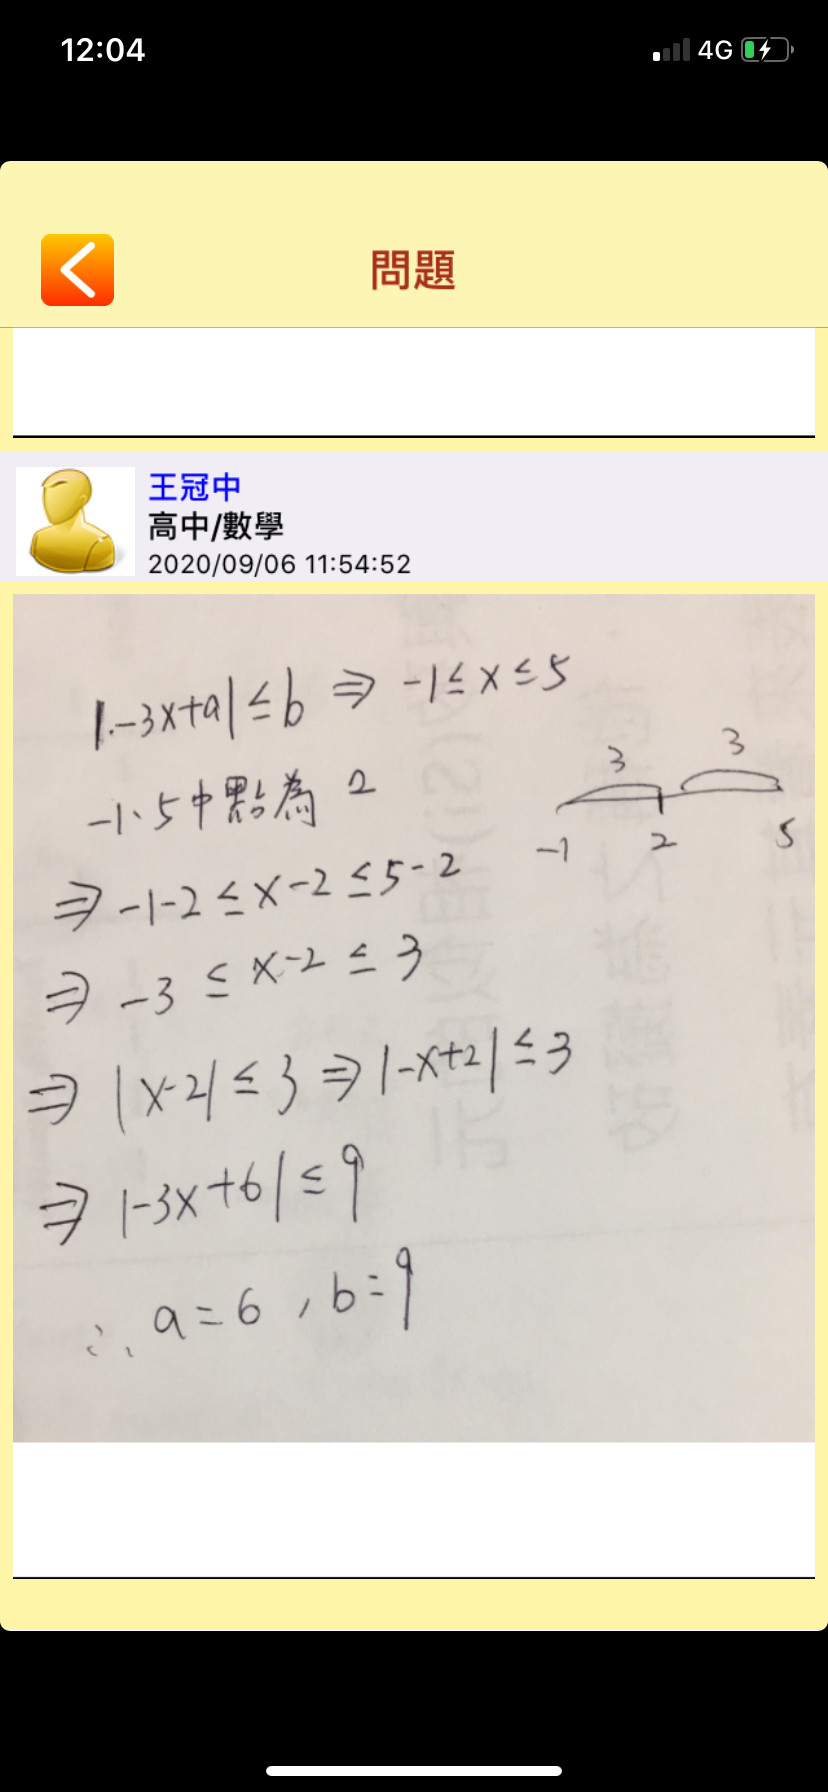 12:04
4G
問題
王冠中
高中/數學
2020/09/06 11:54:52
|-3x+a|≤b ⇒ -1≤x≤5
-1、5中點為 2
3 3
-1 2 5
⇒ -1-2≤x-2≤5-2
⇒ -3≤x-2≤3
⇒ |x-2|≤3 ⇒ |-x+2|≤3
⇒ |-3x+6|≤9
∴ a=6, b=9